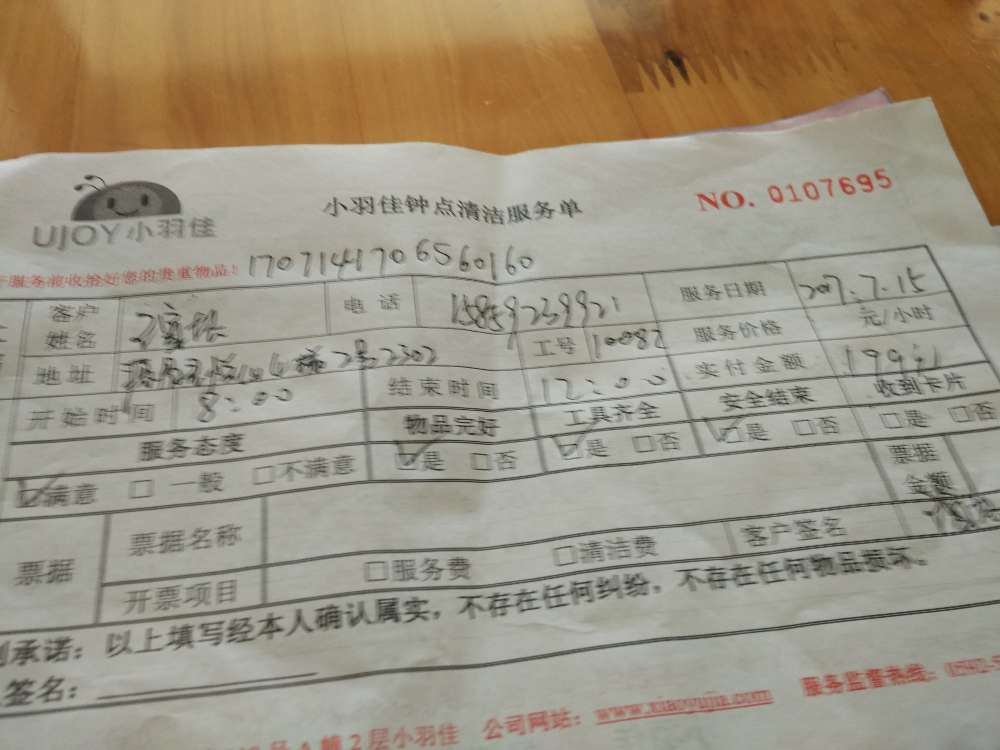 UJOY小羽佳
小羽佳钟点清洁服务单
NO. 0107695
服务前收拾好您的贵重物品！ 17071441706560160
客户姓名 电话 15859239921 服务日期 2017.7.15
地址 2302 工号 10082 服务价格 元/小时
开始时间 8:00 结束时间 12:00 实付金额 199
服务态度 物品完好 工具齐全 安全结束 收到卡片
满意 □ 一般 □不满意 是 □否 是 □否 是 □否 □是 □否
票据 票据名称 票据金额
开票项目 □服务费 □清洁费 客户签名
承诺：以上填写经本人确认属实，不存在任何纠纷，不存在任何物品损坏。
签名：
A幢2层小羽佳 公司网站：www.xiaoyujia.com 服务监督热线：0592-5